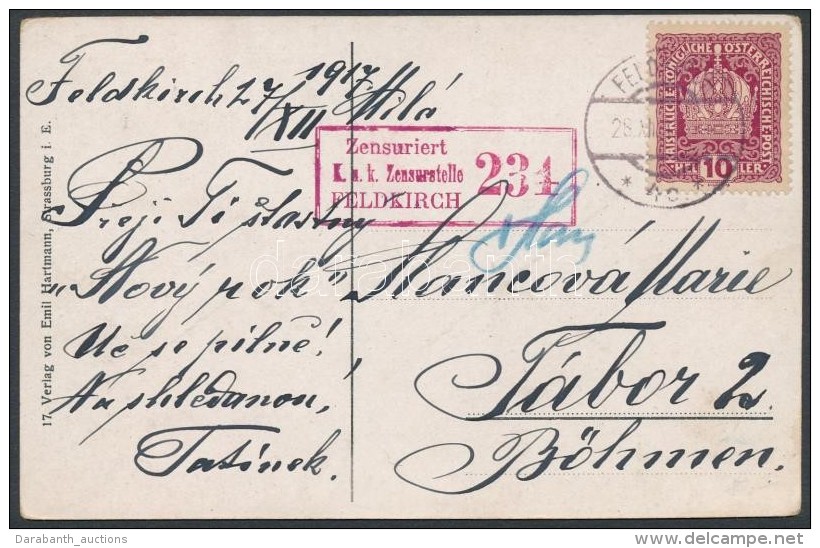 Feldkirch 27/XII 1917
Milá
Přeji Ti šťastný
„Nový rok"
Uč se pilně!
Na shledanou,
Tatínek.
Zensuriert
K. u. k. Zensurstelle
FELDKIRCH
231
Mancová Marie
Tábor 2
Böhmen.
FELD
28.XII
* 4c *
KAISERLICHE KÖNIGLICHE ÖSTERREICHISCHE POST
10
17 Verlag von Emil Hartmann, Strassburg i. E.
darabanth
Darabanth_auctions
delcampe.net